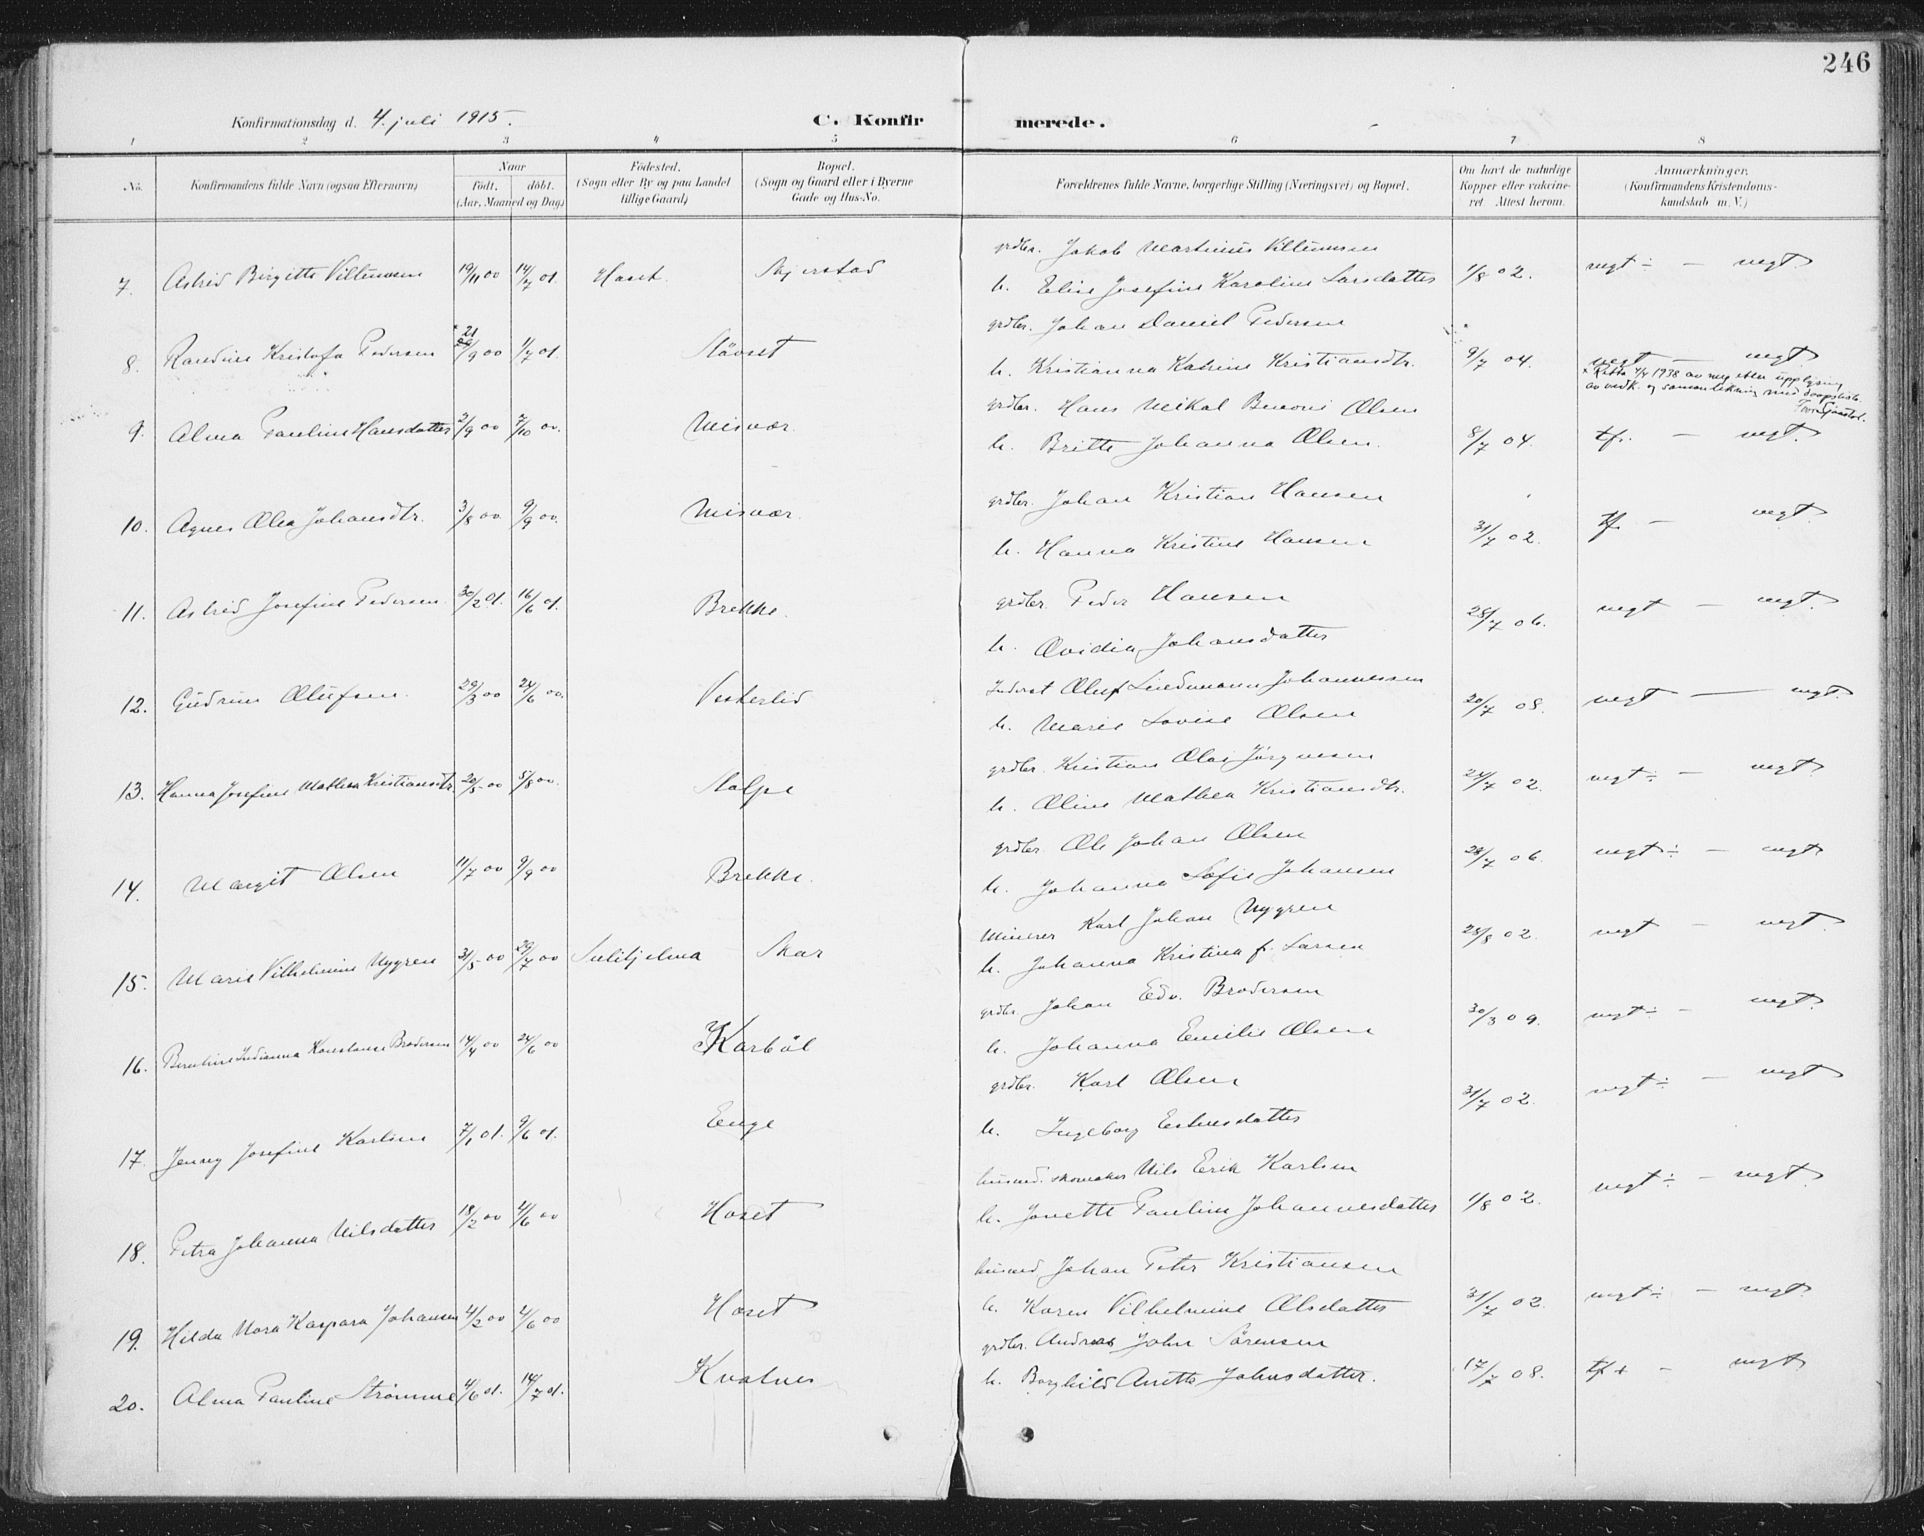 246
Konfirmationsdag d. 4. juli 1915.
C. Konfir merede.
1 2 3 4 5 6 7 8
No.
Konfirmandens fulde Navn (ogsaa Efternavn)
Naar
födt. döbt.
(Aar, Maaned og Dag)
Födested.
(Sogn eller By og paa Landet
tillige Gaard)
Bopæl.
(Sogn og Gaard eller i Byerne
Gade og Hus-No.
Forældrenes fulde Navne, borgerlige Stilling (Næringsvei) og Bopæl.
Om havt de naturlige
Kopper eller vakcine-
ret. Attest herom.
Anmærkninger.
(Konfirmandens Kristendoms-
kundskab m. V.)
grdbr. Jakob Martinius Villumsen
7. Astrid Birgitte Villumsen 19/11 00 14/7 01. Hoset. Skjerstad
h. Elise Josefine Karoline Larsdatter 1/8 02. megt ÷ — megt.
grdbr. Johan Daniel Pedersen
8. Randine Kristofa Pedersen 21 /9 00 1/7 01. Støvset
h. Kristianna Katrine Kristiansdtr. 9/7 04. megt — megt
× Retta 4/4 1938 av meg etter upplysing
av vedk. og samanlikning med doopsliste.
grdbr. Hans Mikal Benoni Olsen
9. Alma Pauline Hansdatter 2/9 00 7/10 00. Misvær.
h. Britte Johanna Olsen. 8/7 04. tf. — megt.
grdbr. Johan Kristian Hansen
10. Agnes Olea Johansdtr. 3/8 00. 9/9 00. Misvær.
h. Hanna Kristine Hansen 31/7 02. tf — megt.
grdbr. Peder Hansen
11. Astrid Josefine Pedersen 30/2 01. 16/6 01. Brekke.
h. Ovidia Johansdatter 28/7 06. megt — megt.
Inderst Oluf Lindmann Johannessen
12. Gudrun Olufsen. 29/3 00 24/6 00. Vesterlid
h. Marie Lovise Olsen 20/7 08. megt — megt.
grdbr. Kristian Olai Jørgensen
13. Hanna Josefine Mathea Kristiansdtr. 20/5 00 5/8 00. Stolpe
h. Oline Mathea Kristiansdtr. 24/7 02. megt ÷ — megt
grdbr. Ole Johan Olsen
14. Margit Olsen 11/7 00 9/9 00 Brekke.
h. Johanna Sofie Johansen 28/7 06. megt ÷ — megt
Minerer Karl Johan Nygren
15. Marie Vilhelmine Nygren 31/5 00 29/7 00 Sulitjelma Skar
h. Johanna Kristina f. Larsen 25/8 02. megt — megt.
grdbr. Johan Edv. Brodersen
16. Berntine Indianna Konstanse Brodersen 14/4 00 24/6 00 Karbøl
h. Johanna Emilie Olsen 30/3 09. megt ÷ — megt.
grdbr. Karl Olsen
17. Jenny Josefine Karlsen 7/1 01. 9/6 01. Enge
h. Ingeborg Estensdatter 31/7 02. megt ÷ — megt
husmd. skomaker Nils Erik Karlsen
18. Petra Johanna Nilsdatter 18/2 00 4/6 00 Hoset
h. Jonette Pauline Johannesdatter 1/8 02. megt ÷ — megt.
husmd Johan Peter Kristiansen
19. Hilda Nora Kaspara Johansen 4/2 00 4/6 00 Hoset
h. Karen Vilhelmine Olsdatter 31/7 02. megt ÷ — megt.
grdbr. Andreas John Sørensen
20. Alma Pauline Strømme 4/6 01. 14/7 01. Kvalnes
h. Borghild Anette Johnsdatter. 17/7 08. tf + — megt